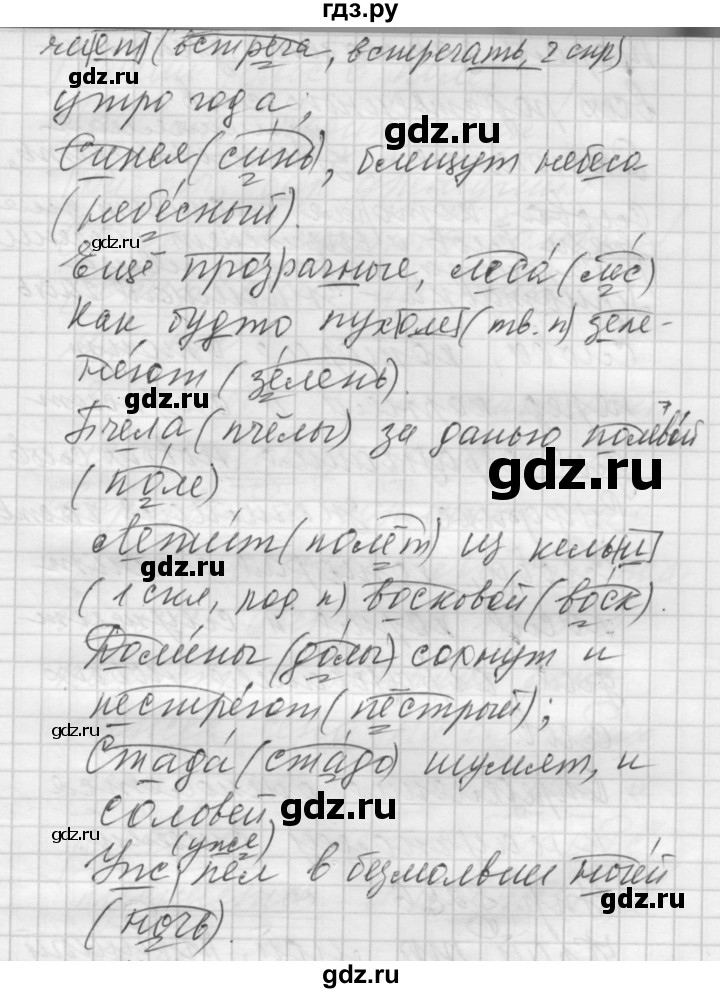 гдз.ру
чает] (встреча, встречать, 2 спр)
утро года;
gdz.ru
Синея (синь), блещут небеса
(небесный).
gdz.ru
Ещё прозрачные, леса (лес)
Как будто пух[ом] (тв. п) зеле-
gdz.ru
неют (зелень).
gdz.ru
Пчела (пчёлы) за данью полевой
gdz.ru
(поле)
Летит (полёт) из кель[и]
gdz.ru
(1 скл, род. п) восковой (воск).
Долины (долы) сохнут и
gdz.ru
пестреют (пёстрый);
gdz.ru
Стада (стадо) шумят, и
соловей
gdz.ru
gdz.ru
(уже)
Уж пел в безмолвии ночей
(ночь).
gdz.ru
gdz.ru